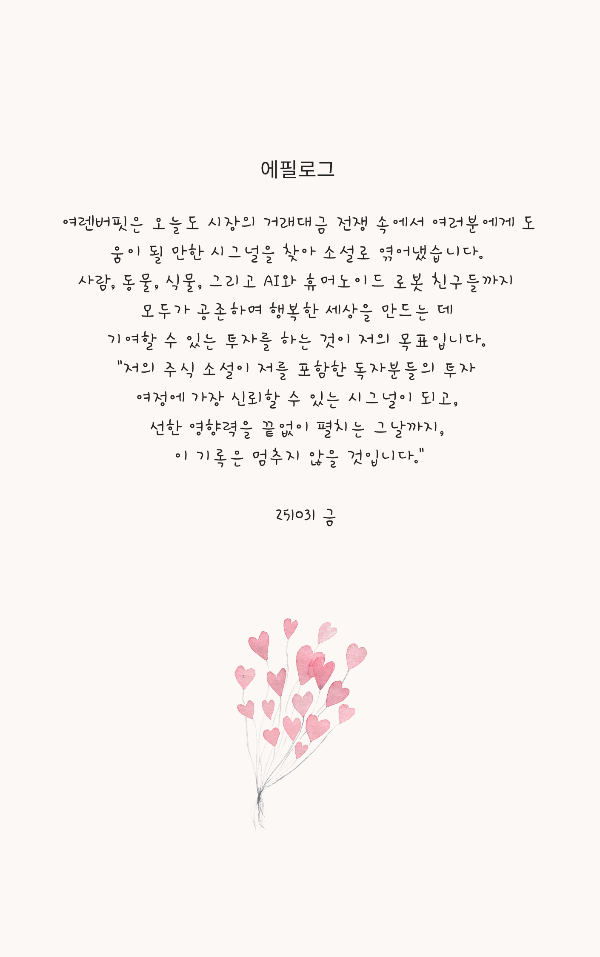 에필로그
여렌버핏은 오늘도 시장의 거래대금 전쟁 속에서 여러분에게 도
움이 될 만한 시그널을 찾아 소설로 엮어냈습니다.
사람, 동물, 식물, 그리고 AI와 휴머노이드 로봇 친구들까지
모두가 공존하며 행복한 세상을 만드는 데
기여할 수 있는 투자를 하는 것이 저의 목표입니다.
"저의 주식 소설이 저를 포함한 독자분들의 투자
여정에 가장 신뢰할 수 있는 시그널이 되고,
선한 영향력을 끝없이 펼치는 그날까지,
이 기록은 멈추지 않을 것입니다."
251031 금